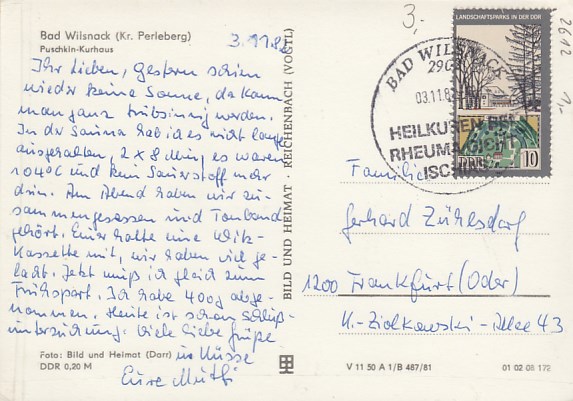 Bad Wilsnack (Kr. Perleberg)
Puschkin-Kurhaus
3.11.82
Ihr Lieben, gestern schien
wieder keine Sonne, da kann
man ganz trübsinnig werden.
In der Sauna hab ich es nicht lange
ausgehalten, 2 x 8 Min, es waren
104°C und kein Sauerstoff mehr
drin. Am Abend haben wir zu-
sammengesessen und Tonband
gehört. Einer hatte eine Witz-
Kassette mit, wir haben viel ge-
lacht. Jetzt muß ich gleich zum
Frühsport. Ich habe 400g abge-
nommen. Heute ist schon Schluß-
untersuchung. Viele liebe Grüße
und Küsse
Eure Mutti
Foto: Bild und Heimat (Darr)
DDR 0,20 M
BILD UND HEIMAT · REICHENBACH (VOGTL)
3,-
2612
1,-
LANDSCHAFTSPARKS IN DER DDR
DDR 10
BAD WILSNACK
03.11.82
HEILKUREN BEI
RHEUMA GICHT
ISCHIAS
Familie
Gerhard Zühlsdorf
1200 Frankfurt (Oder)
K.-Ziolkowski-Allee 43
V 11 50 A 1/B 487/81
01 02 08 172